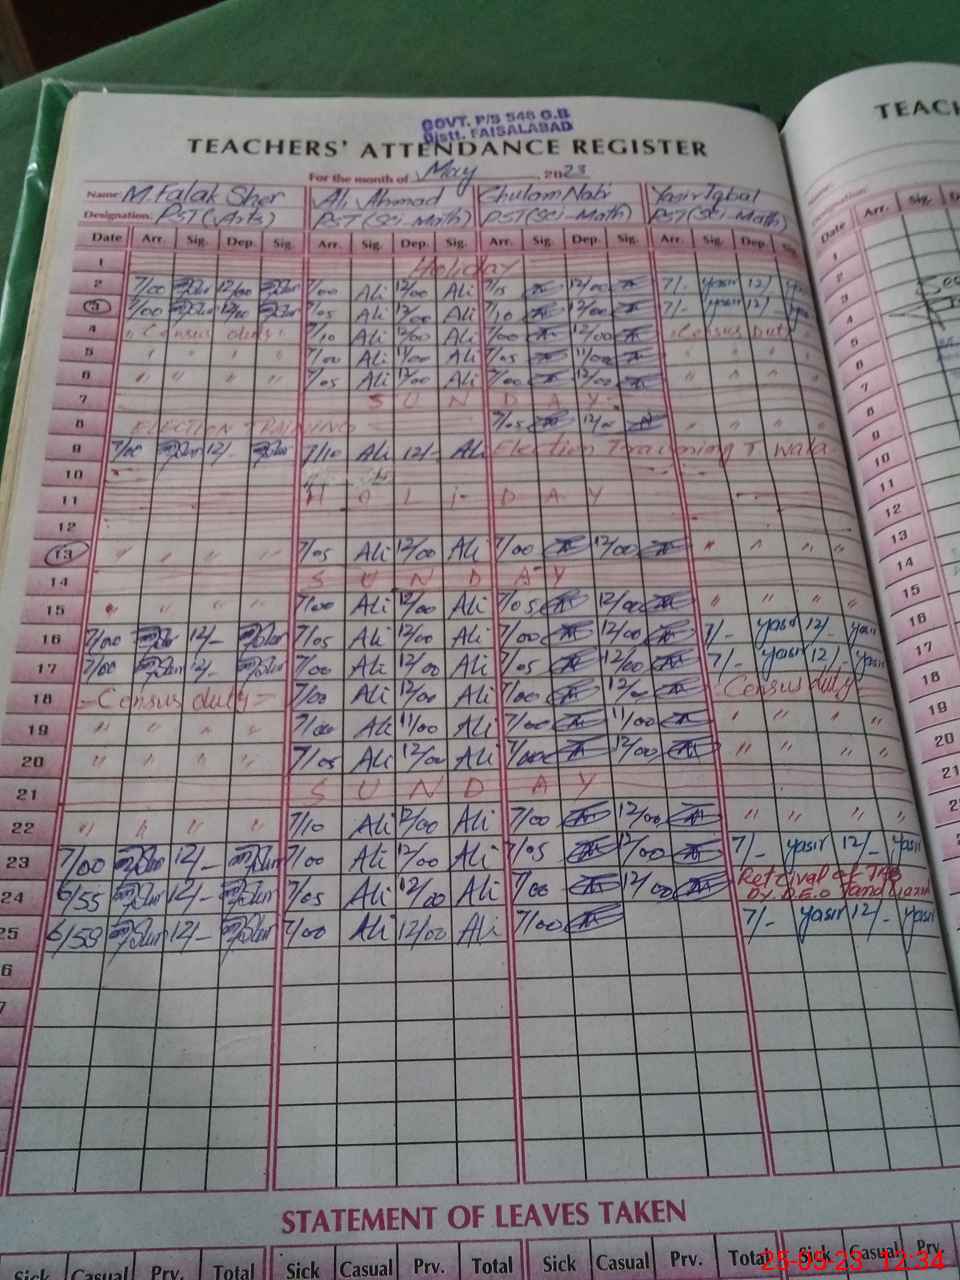 GOVT. P/S 548 G.B
Distt. FAISALABAD
TEACHERS' ATTENDANCE REGISTER
For the month of May 2023
Name: M. Falak Sher Ali Ahmad Ghulam Nabi Yasir Iqbal
Designation: PST (Arts) PST (Sci-Math) PST (Sci-Math) PST (Sci-Math)
Date Arr. Sig. Dep. Sig. Arr. Sig. Dep. Sig. Arr. Sig. Dep. Sig. Arr. Sig. Dep.
1 Holiday
2 7/00 12/00 7/00 Ali 12/00 Ali 7/15 12/00 7/- yasir 12/
3 7/00 12/00 7/05 Ali 12/00 Ali 7/10 12/00 7/- yasir 12/-
4 Census duty 7/10 Ali 12/00 Ali 7/00 12/00 Census duty
5 " " " " 7/00 Ali 11/00 Ali 7/05 11/00 " " "
6 " " " " 7/05 Ali 12/00 Ali 7/00 12/00 " " "
7 S U N D A Y
8 ELECTION TRAINING 7/05 12/00 " " " "
9 7/00 12/- 7/10 Ali 12/- Ali Election Training T. Wala
10
11 H O L I D A Y
12
13 " " " " 7/05 Ali 12/00 Ali 7/00 12/00 " " " "
14 S U N D A Y
15 " " " " 7/00 Ali 12/00 Ali 7/05 12/00 " " " "
16 7/00 12/- 7/05 Ali 12/00 Ali 7/00 12/00 7/- yasir 12/- yasir
17 7/00 12/- 7/00 Ali 12/00 Ali 7/05 12/00 7/- yasir 12/- yasir
18 - Census duty - 7/00 Ali 12/00 Ali 7/00 12/00 Census duty
19 " " " " 7/00 Ali 11/00 Ali 7/00 11/00 " " " "
20 " " " " 7/05 Ali 12/00 Ali 7/00 12/00 " " " "
21 S U N D A Y
22 " " " " 7/10 Ali 12/00 Ali 7/00 12/00 " " " "
23 7/00 12/- 7/00 Ali 12/00 Ali 7/05 12/00 7/- yasir 12/- yasir
24 6/55 12/- 7/05 Ali 12/00 Ali 7/00 12/00 of TAB
By D.E.O
25 6/59 12/- 7/00 Ali 12/00 Ali 7/00 7/- yasir 12/- yasir
STATEMENT OF LEAVES TAKEN
Sick Casual Prv. Total Sick Casual Prv. Total Sick Casual Prv. Total Sick Casual Prv.
TEACH
Date Arr. Sig.
1
2
3
4
5
6
7
8
9
10
11
12
13
14
15
16
17
18
19
20
21
25-05-23 12:34